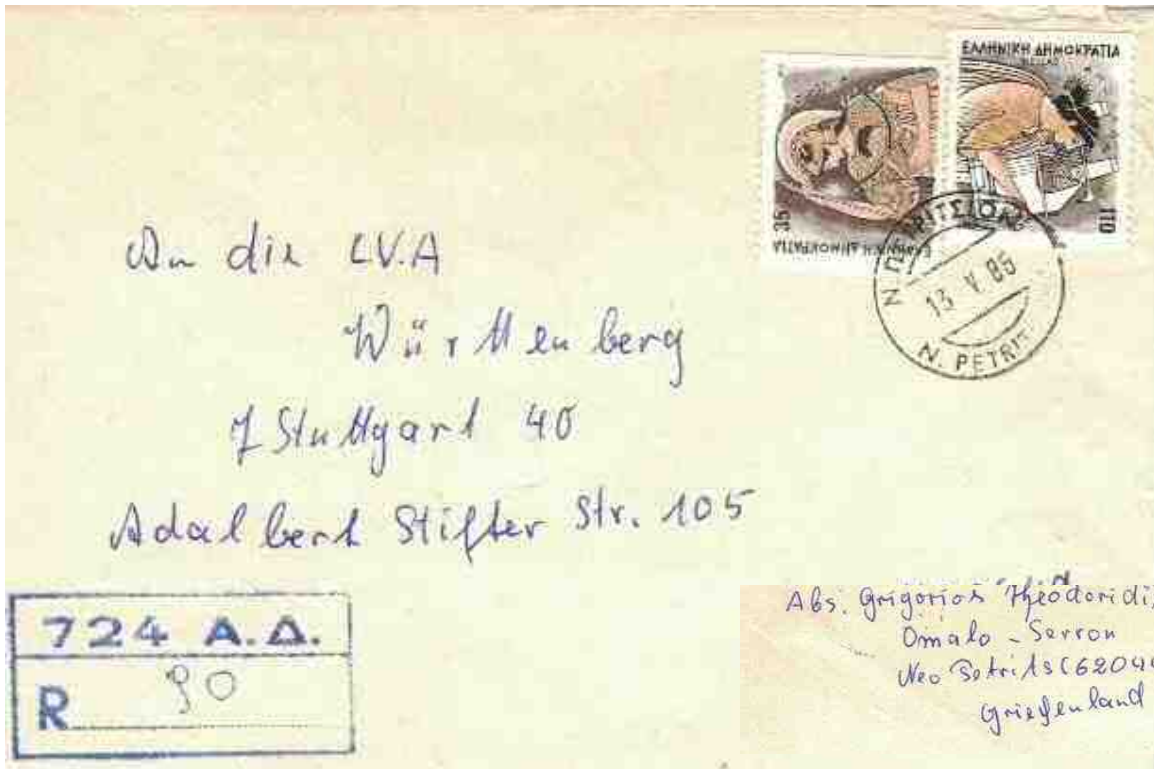 ΕΛΛΗΝΙΚΗ ΔΗΜΟΚΡΑΤΙΑ
HELLAS
110
ΕΛΛΗΝΙΚΗ ΔΗΜΟΚΡΑΤΙΑ
35
13 V 85
N. PETRIT
An die LVA
Württenberg
7 Stuttgart 40
Adalbert Stifter Str. 105
724 Α.Δ.
R 90
Abs. Grigorios Theodoridi
Omalo - Serron
Neo Petrits (6204
Griechenland